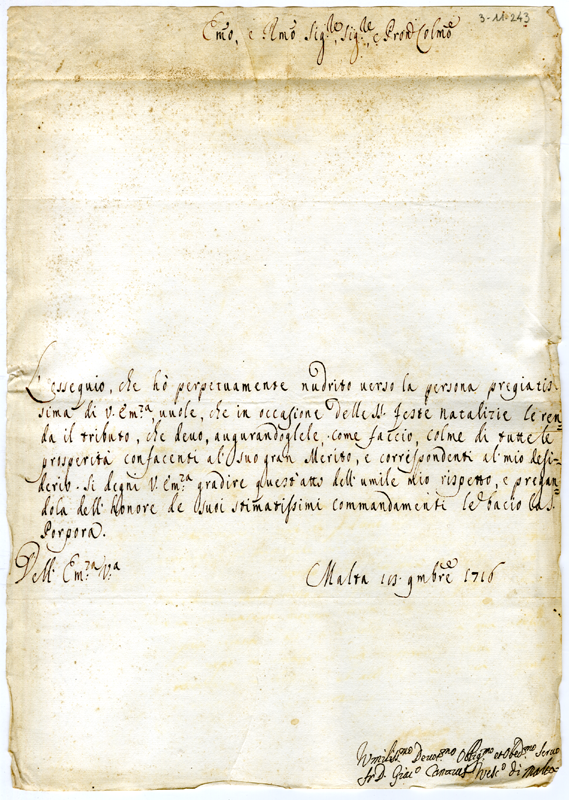 3-11-243
Emo, e Rmo Sig.re, Sig.re, e Pron Colmo
L'essequio, che hò perpetuamente nudrito verso la persona pregiatis-
sima di V. Em.ra, vuole, che in occasione delle SS. feste natalizie le ren-
da il tributo, che devo, augurandoglele, come faccio, colme di tutte le
prosperità confacenti al suo gran Merito, e corrispondenti al mio desi-
derio. Si degni V. Em.ra gradire quest'atto dell'umile mio rispetto, e pregan-
dola dell'honore de suoi stimatissimi commandamenti le bacio la S.
Porpora.
Dell' Em.ra V.ra
Malta 9mbre 1716
Umilis.mo Devot.mo Obblig.mo et Obed.mo Servo
fr D. Giac.o Canaves Vesc.o di Malta